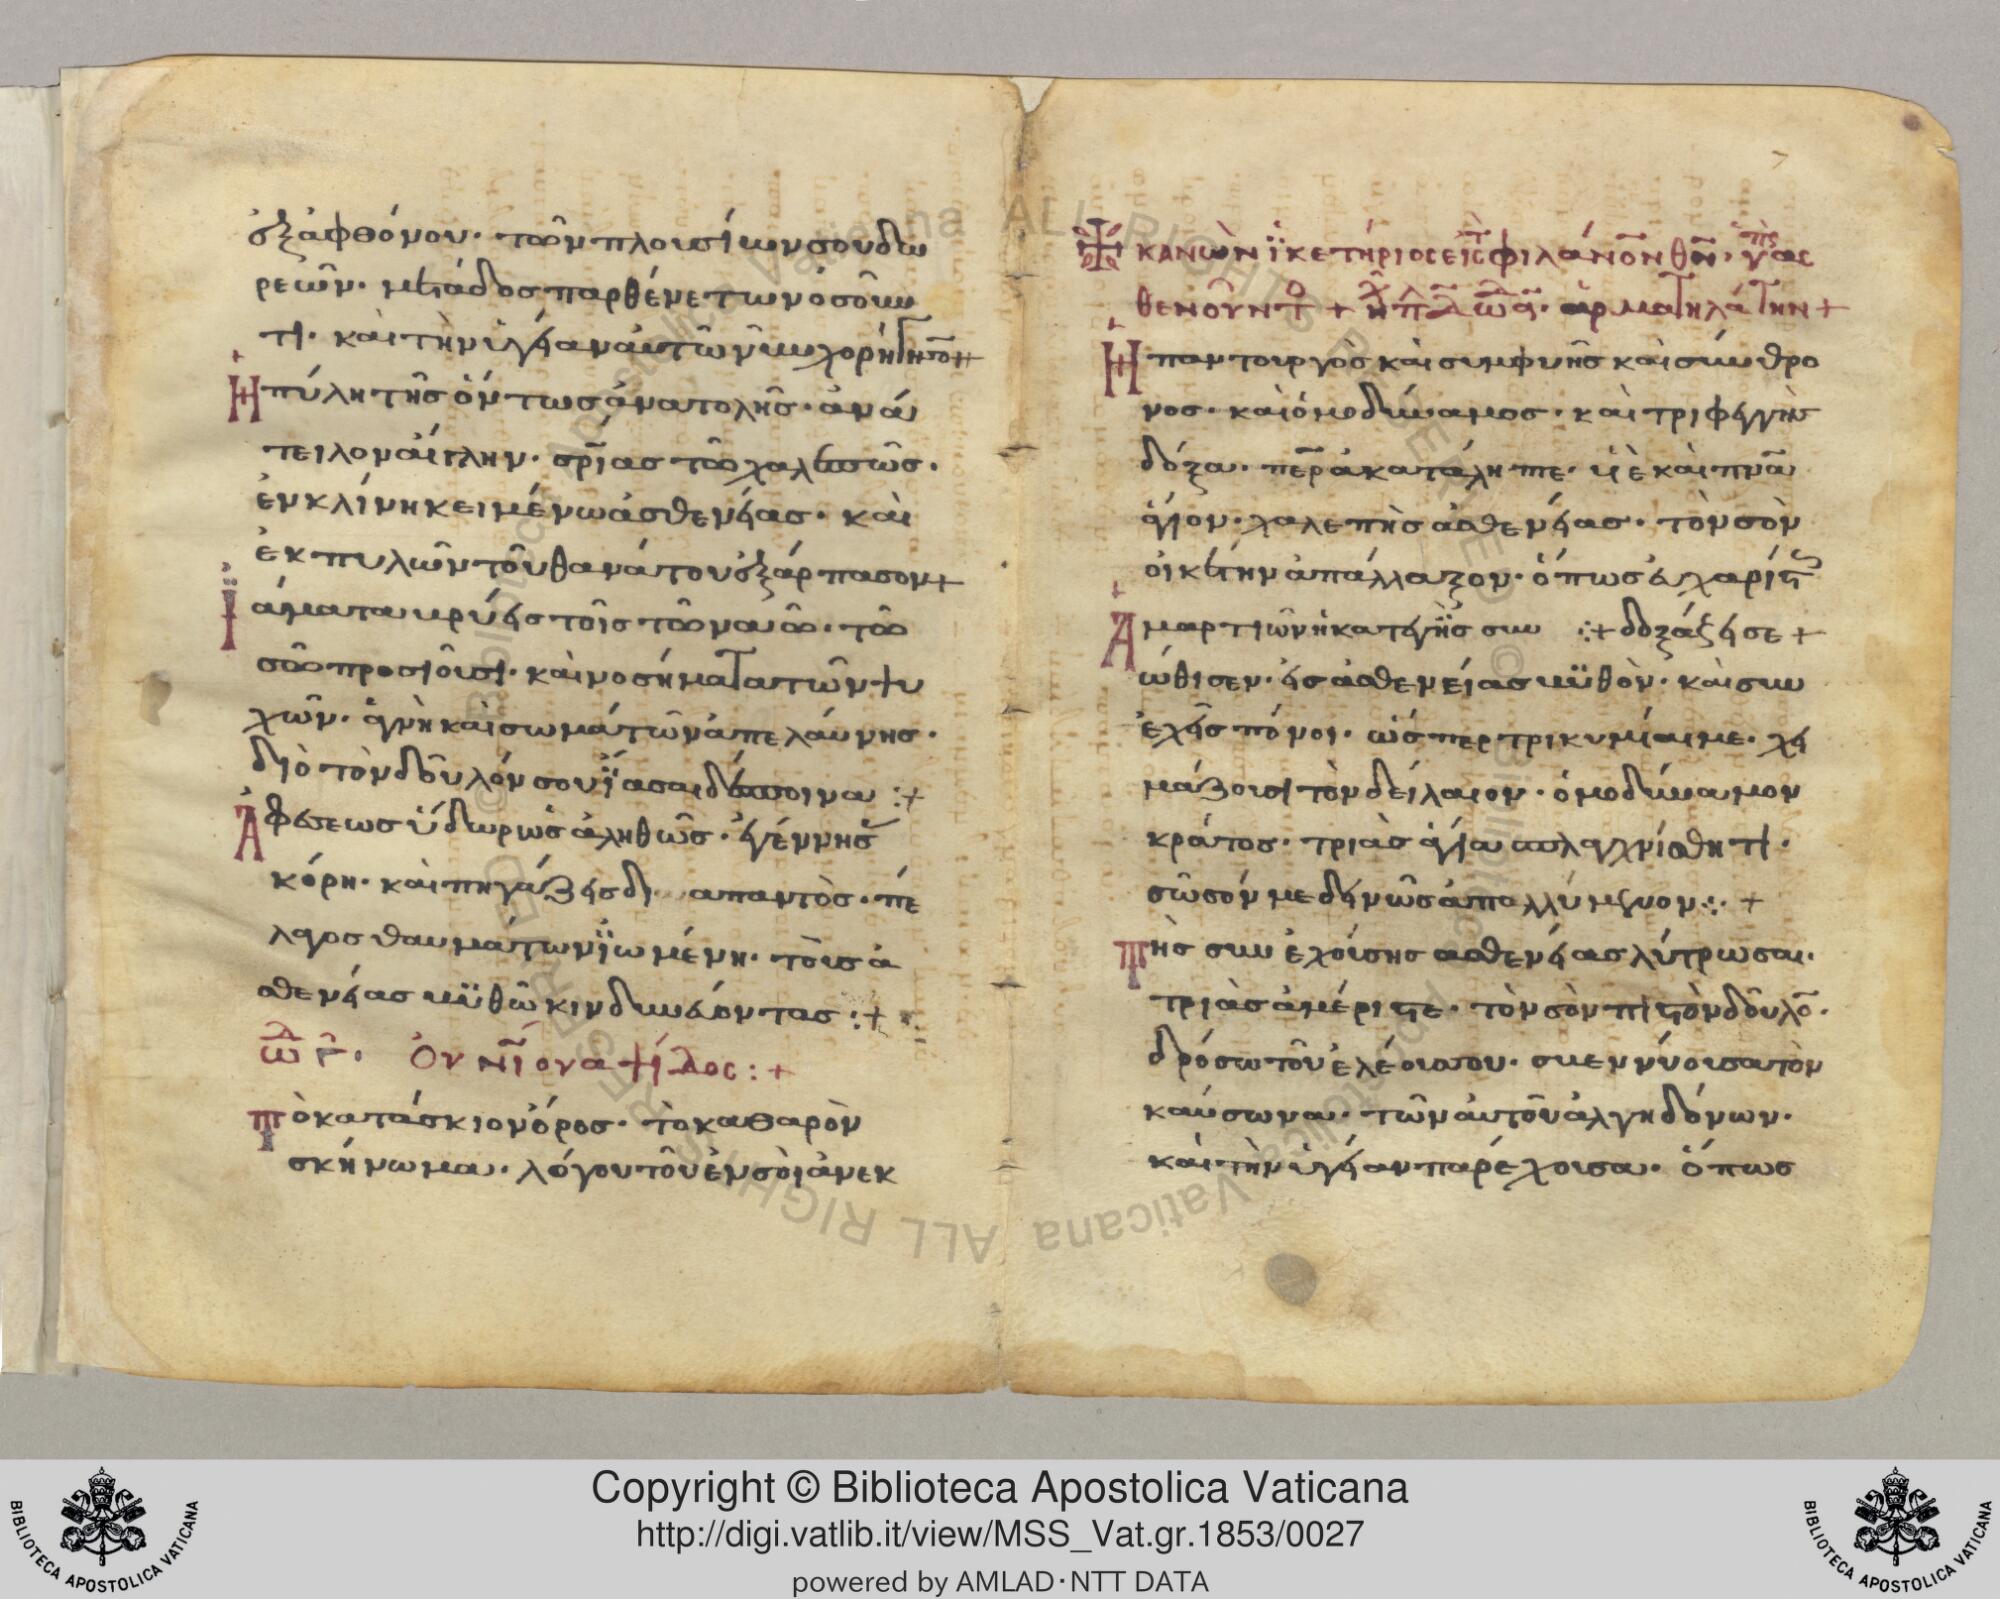 ἐξ ἀφθόνου· τῶν πλουσίων σου δω
ρεῶν· μετάδος παρθένε τῶ νοσοῦν
τι· καὶ τὴν ὑγείαν αὐτῶ νῦν χορήγησον+
Ἡ πύλη τῆς ὄντως ἀνατολῆς· ἀνά
τειλον αἴγλην· σρίας τῶ χαλεπῶς·
ἐν κλίνη κειμένω ἀσθενείας· καὶ
ἐκ πυλῶν τοῦ θανάτου ἐξάρπασον+
Ἰάματα βρύεις τοῖς τῶ ναῶ· τῶ
σῶ προσιοῦσι· καὶ νοσήματα τῶν ψυ
χῶν· ἁγνὴ καὶ σωμάτων ἀπελαύνης·
διὸ τὸν δοῦλόν σου ἴασαι δέσποινα :+
Ἀφέσεως ὕδωρ ὡς ἀληθῶς· ἐγέννησας
κόρη· καὶ πηγάζεις διαπαντὸς· πέ
λαγος θαυμάτων ἰωμένη· τοῖς ἀ
σθενείας βυθῶ κινδυνεύοντας :+
ὠδ ς· Ὃν νῖονα ψίλος :+
Τὸ κατάσκιον ὄρος· τὸ καθαρὸν
σκήνωμα· λόγου τοῦ ἐν σοὶ ἀνεκ
ΚΑΝῺΝ ἹΚΕΤΉΡΙΟΣ ΕἸΣ Τ ΦΙΛΆΝΟΝ ΘΝ· ὙΠῈΡ ἈΣ
ΘΕΝΟΥ͂ΝΤΟ + ἮΧ ΠΛ Α ὨΔ Α· ἁρματηλάτην+
Ἡ παντουργὸς καὶ συμφυὴς καὶ σύνθρο
νος· καὶ ὁμοδύναμος· καὶ τριφεγγὴς
δόξα· περ ἀκατάληπτε· υἱὲ καὶ πνα
ἅγιον· χαλεπῆς ἀσθενείας· τὸν σὸν
οἰκέτην ἀπάλλαξον· ὅπως εὐχαρίστως
Ἁμαρτιῶν ἡ καταιγὶς συν :+ δοξάζει σε+
ώθισεν· εἰς ἀσθενείας βυθὸν· καὶ συν
εχεῖς πόνοι· ὥσπερ τρικυμίαι με· χει
μάζουσι τὸν δείλαιον· ὁμοδύναμον
κράτος· τριὰς ἁγία σπλαγχνίσθητι·
σῶσόν με δεινῶς ἀπολλύμενον :· +
Τῆς συνεχούσης ἀσθενείας λύτρωσαι·
τριὰς ἀμέριστε· τὸν σὸν πιστὸν δοῦλον·
δρόσω τοῦ ἐλέους σου· σβεννύουσα τὸν
καύσωνα· τῶν αὐτοῦ ἀλγηδόνων·
καὶ τὴν ὑγείαν παρέχουσα· ὅπως
Copyright © Biblioteca Apostolica Vaticana
http://digi.vatlib.it/view/MSS_Vat.gr.1853/0027
powered by AMLAD·NTT DATA
BIBLIOTECA APOSTOLICA VATICANA
BIBLIOTECA APOSTOLICA VATICANA